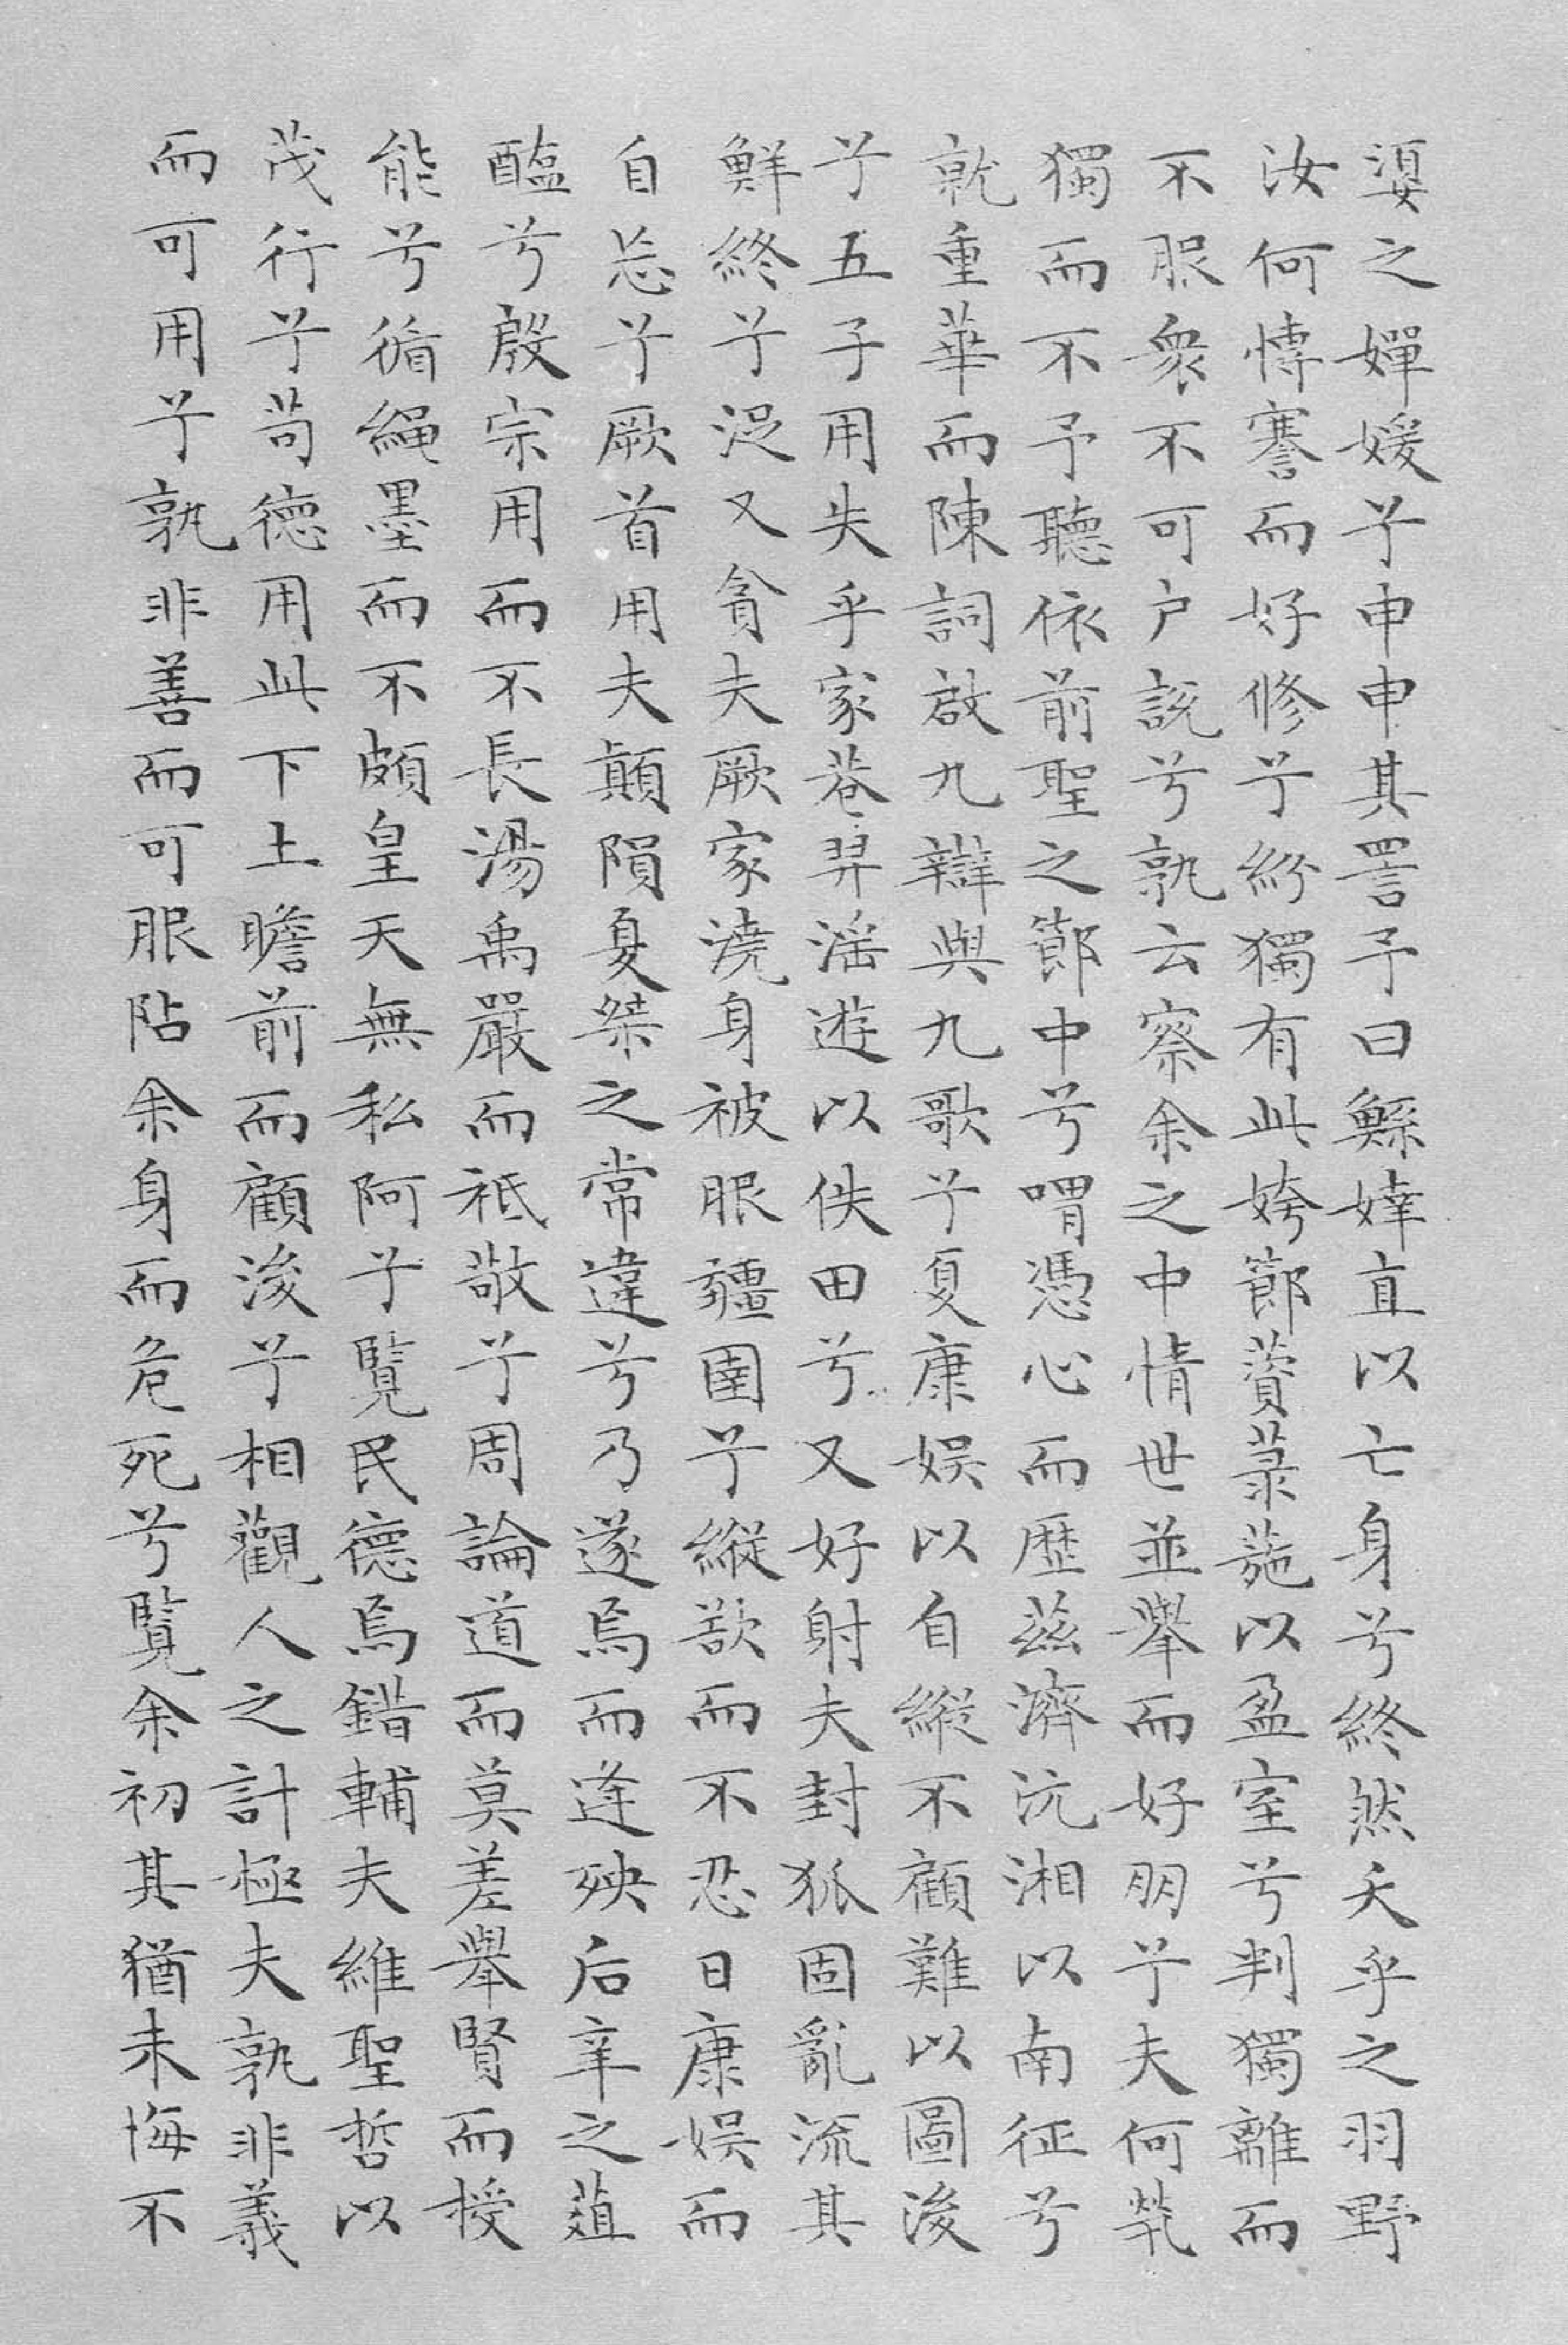 媭之嬋媛兮申申其詈予曰鯀婞直以亡身兮終然夭乎之羽野
汝何博謇而好修兮紛獨有此姱節薋菉葹以盈室兮判獨離而
不服衆不可户説兮孰云察余之中情世並舉而好朋兮夫何煢
獨而不予聽依前聖之節中兮喟憑心而歷茲濟沅湘以南征兮
就重華而陳詞啟九辯與九歌兮夏康娛以自縱不顧難以圖後
兮五子用失乎家巷羿滛遊以佚田兮又好射夫封狐固亂流其
鮮終兮浞又貪夫厥家澆身被服彊圉兮縱欲而不忍日康娛而
自忘兮厥首用夫顛隕夏桀之常違兮乃遂焉而逢殃后辛之菹
醢兮殷宗用而不長湯禹嚴而祗敬兮周論道而莫差舉賢而授
能兮循繩墨而不頗皇天無私阿兮覽民德焉錯輔夫維聖哲以
茂行兮苟德用此下土瞻前而顧後兮相觀人之計極夫孰非義
而可用兮孰非善而可服阽余身而危死兮覽余初其猶未悔不